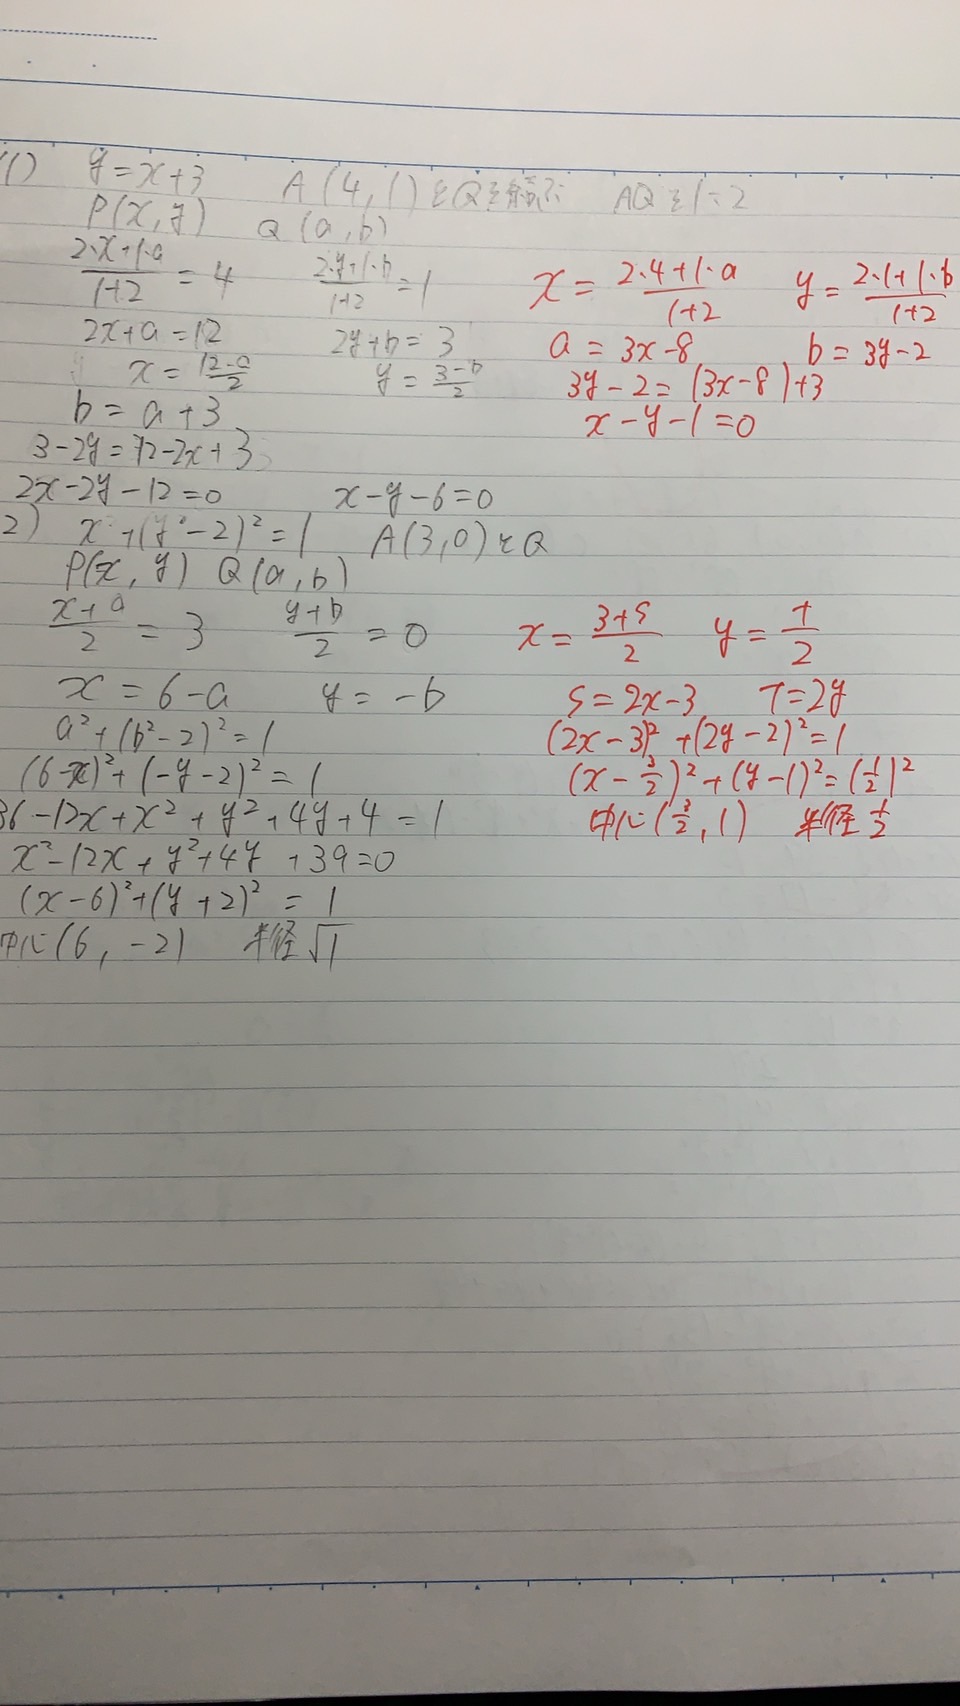 (1) y=x+3 A(4,1)とQを結ぶ AQを1:2
P(x,y) Q(a,b)
(2·x+1·a)/(1+2) = 4 (2·y+1·b)/(1+2) = 1
2x+a=12 2y+b=3
x=(12-a)/2 y=(3-b)/2
b=a+3
3-2y=12-2x+3
2x-2y-12=0 x-y-6=0
x=(2·4+1·a)/(1+2) y=(2·1+1·b)/(1+2)
a=3x-8 b=3y-2
3y-2=(3x-8)+3
x-y-1=0
2) x²+(y²-2)²=1 A(3,0)とQ
P(x,y) Q(a,b)
(x+a)/2=3 (y+b)/2=0
x=6-a y=-b
a²+(b²-2)²=1
(6-x)²+(-y-2)²=1
36-12x+x²+y²+4y+4=1
x²-12x+y²+4y+39=0
(x-6)²+(y+2)²=1
中心(6,-2) 半径√1
x=(3+s)/2 y=T/2
s=2x-3 T=2y
(2x-3)²+(2y-2)²=1
(x-3/2)²+(y-1)²=(1/2)²
中心(3/2,1) 半径1/2